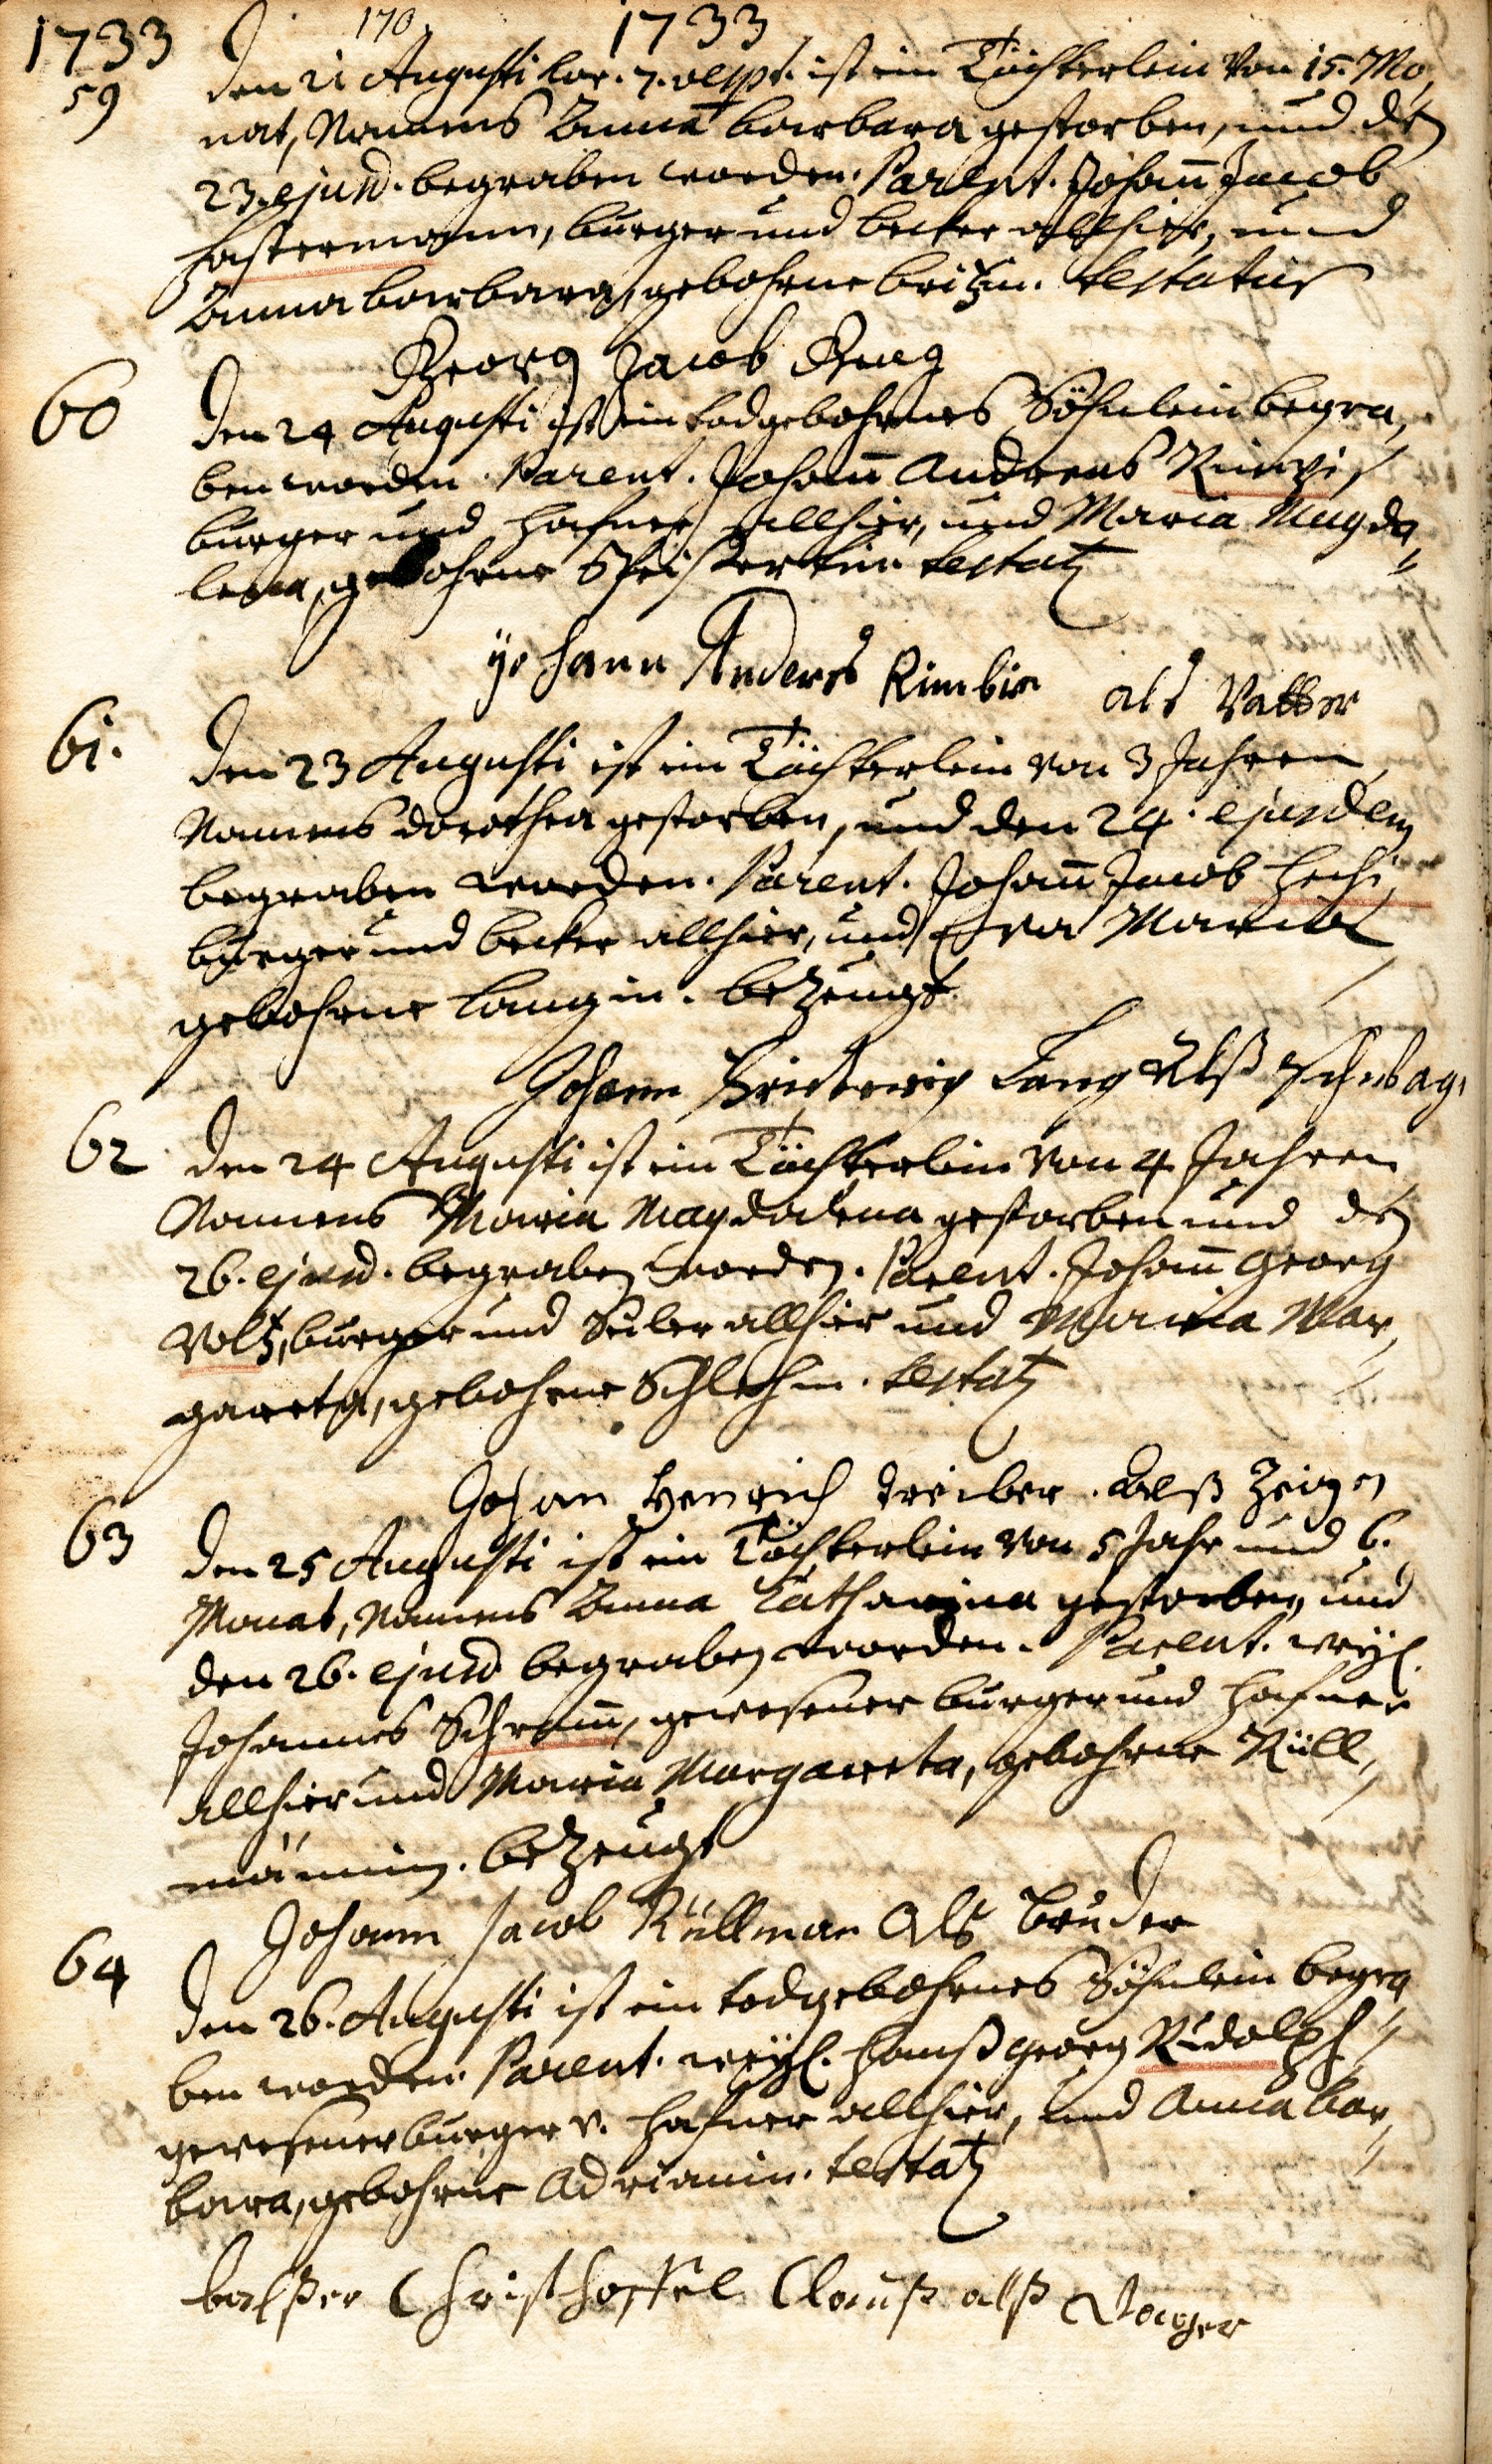 170
1733 1733
59 den 21 Augusti hor. 7. vesp. ist ein Töchterlein von 15. Mo,
nat, Namens Anna barbara gestorben, und den
23. ejusd. begraben worden. Parent. Johann Jacob
hastermann, burger und becker allhier, und
Anna barbara, gebohrne britzin. testatur
Georg Jacob
60 den 24 Augusti ist ein todgebohrnes Söhnlein begra,
ben worden. Parent. Johann Andreas Rimpi,
burger und hafner allhier, und Maria Magda,
lena, gebohrne testat
yohann Anders Rimbie als Vatter
61. den 23 Augusti ist ein Töchterlein von 3 Jahren,
Namens dorothea gestorben, und den 24. ejusdem
begraben worden. Parent. Johann Jacob hechi,
burger und becker allhier, und Eva Maria
gebohrne Langin. bezeugt
Johann Friderich Lang Alß Schwag.
62 den 24 Augusti ist ein Töchterlein von 4 Jahren
Namens Maria Magdalena gestorben und den
26. ejusd. begraben worden. Parent. Johann Georg
Voltz, burger und Seiler allhier und Maria Mar,
gareta, gebohrne testat
Johan Henrich treiber. Alß Zeigen
63 den 25 Augusti ist ein Töchterlein von 5 Jahr und 6.
Monat, Namens Anna Catharina gestorben, und
den 26. ejusd begraben worden. Parent. weyl.
Johannes Schramm, gewesener burger und hafner
allhier und Maria Margareta, gebohrne Rüll,
männin. bezeugt
Johann Jacob Rüllman Als bruder
64 den 26. Augusti ist ein todgebohrnes Söhnlein begra
ben worden. Parent. weyl. hanß Georg Rudolph,
gewesener burger v. hafner allhier, und Anna bar,
bara, gebohrne Adrianin. testat
balßer Christhoffel Clauß alß